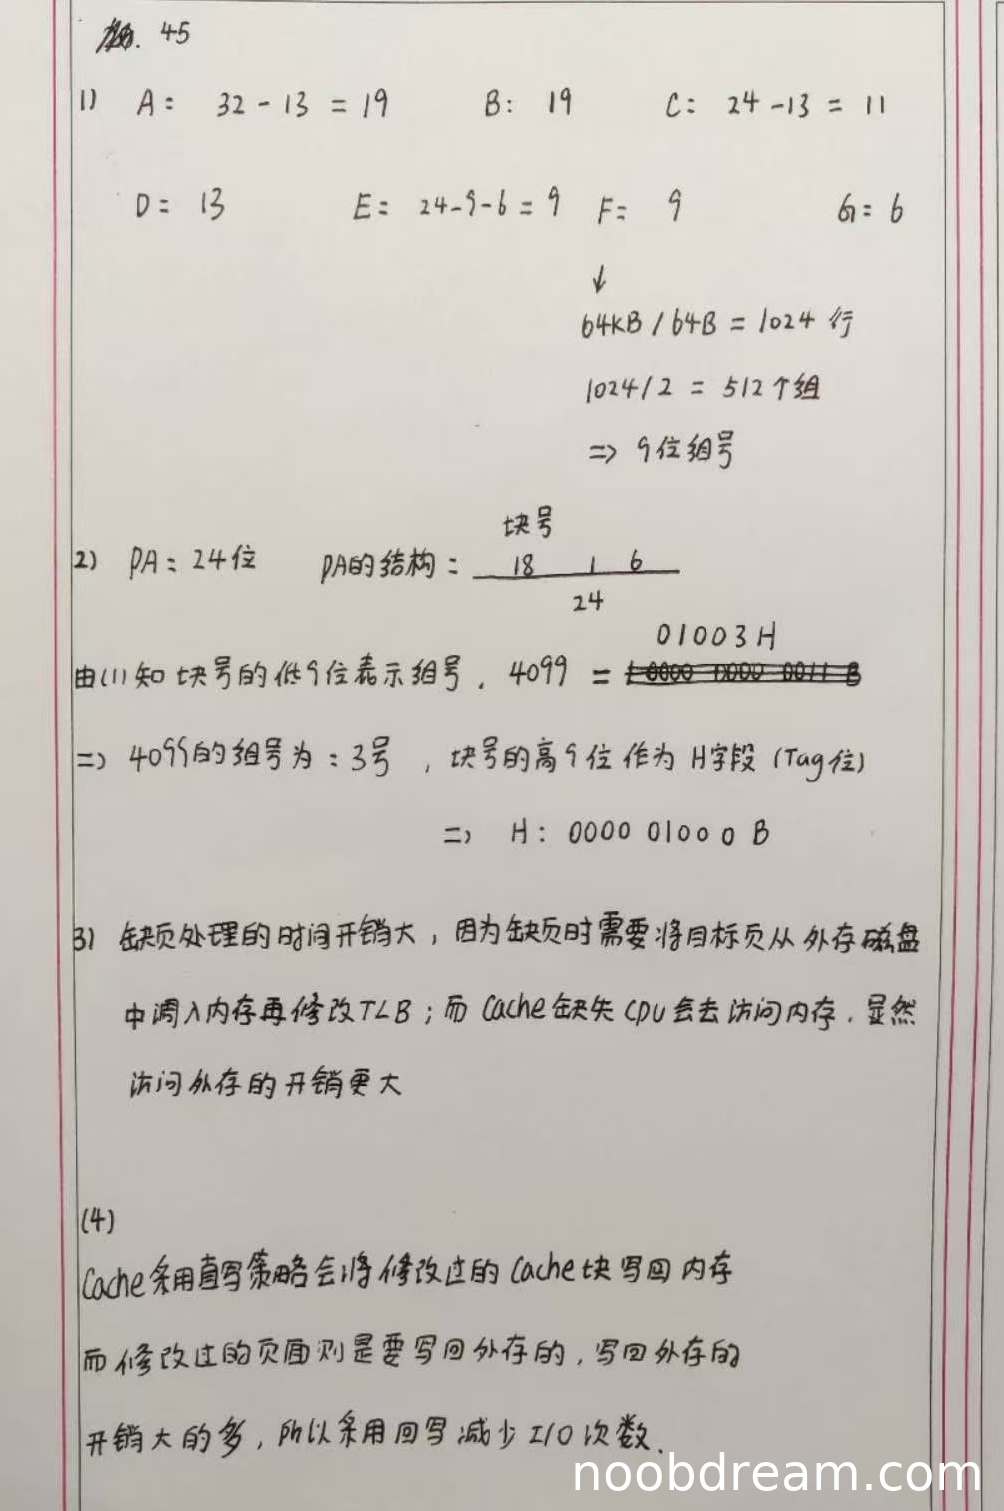 45
1) A: 32-13=19 B: 19 C: 24-13=11
D: 13 E: 24-9-6=9 F: 9 G: 6
↓
64KB/64B=1024行
1024/2=512个组
=> 9位组号
块号
2) PA:24位 PA的结构: 18 1 6
24
01003H
由(1)知块号的低9位表示组号. 4099 =
=> 4099的组号为:3号,块号的高9位作为H字段(Tag位)
=> H: 0000 01000B
3) 缺页处理的时间开销大,因为缺页时需要将目标页从外存磁盘
中调入内存再修改TLB;而Cache缺失CPU会去访问内存.显然
访问外存的开销更大
(4)
Cache采用直写策略会将修改过的Cache块写回内存
而修改过的页面则是要写回外存的,写回外存的
开销大的多,所以采用回写减少I/O次数.
noobdream.com